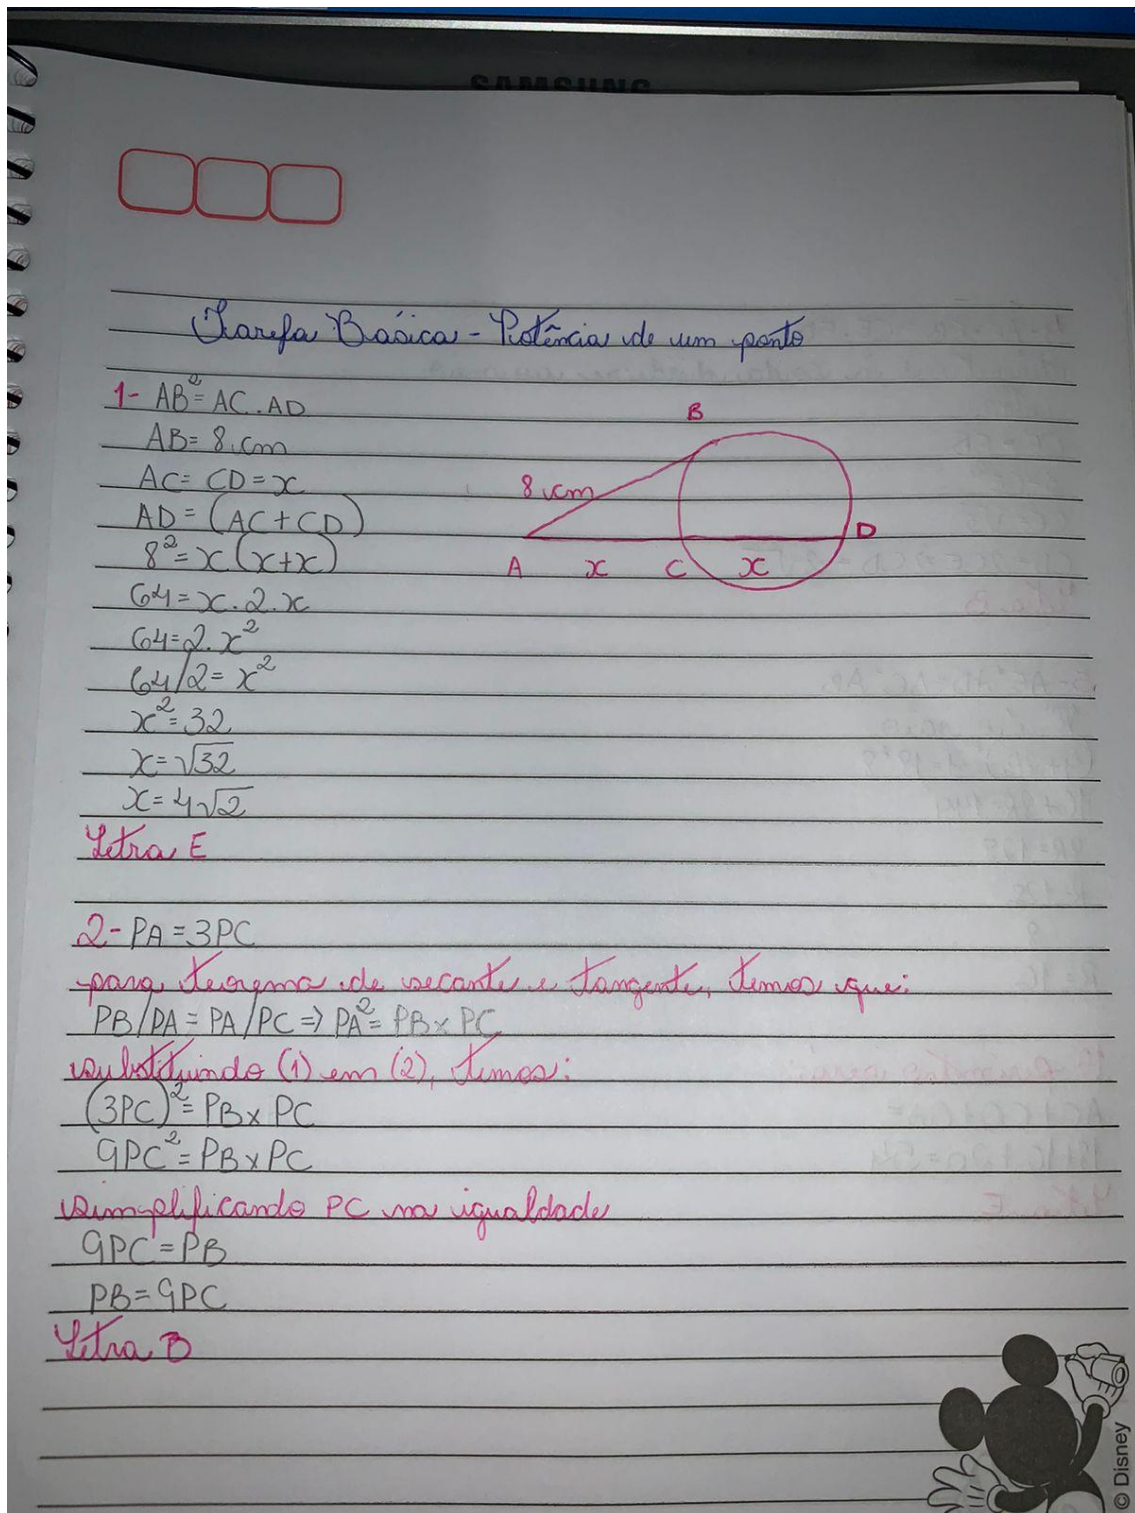 SAMSUNG
Tarefa Básica - Potência de um ponto
1- AB²= AC . AD
AB= 8 cm
AC= CD = x
AD = (AC + CD)
8²= x (x+x)
64 = x . 2 . x
64 = 2 . x²
64/2 = x²
x² = 32
x = √32
x = 4√2
Letra E
B
8 cm
D
A x C x
2- PA = 3PC
para teorema de secante e tangente, temos que:
PB/PA = PA/PC => PA² = PB x PC
substituindo (1) em (2), temos:
(3PC)² = PB x PC
9PC² = PB x PC
simplificando PC na igualdade
9PC = PB
PB = 9PC
Letra B
© Disney